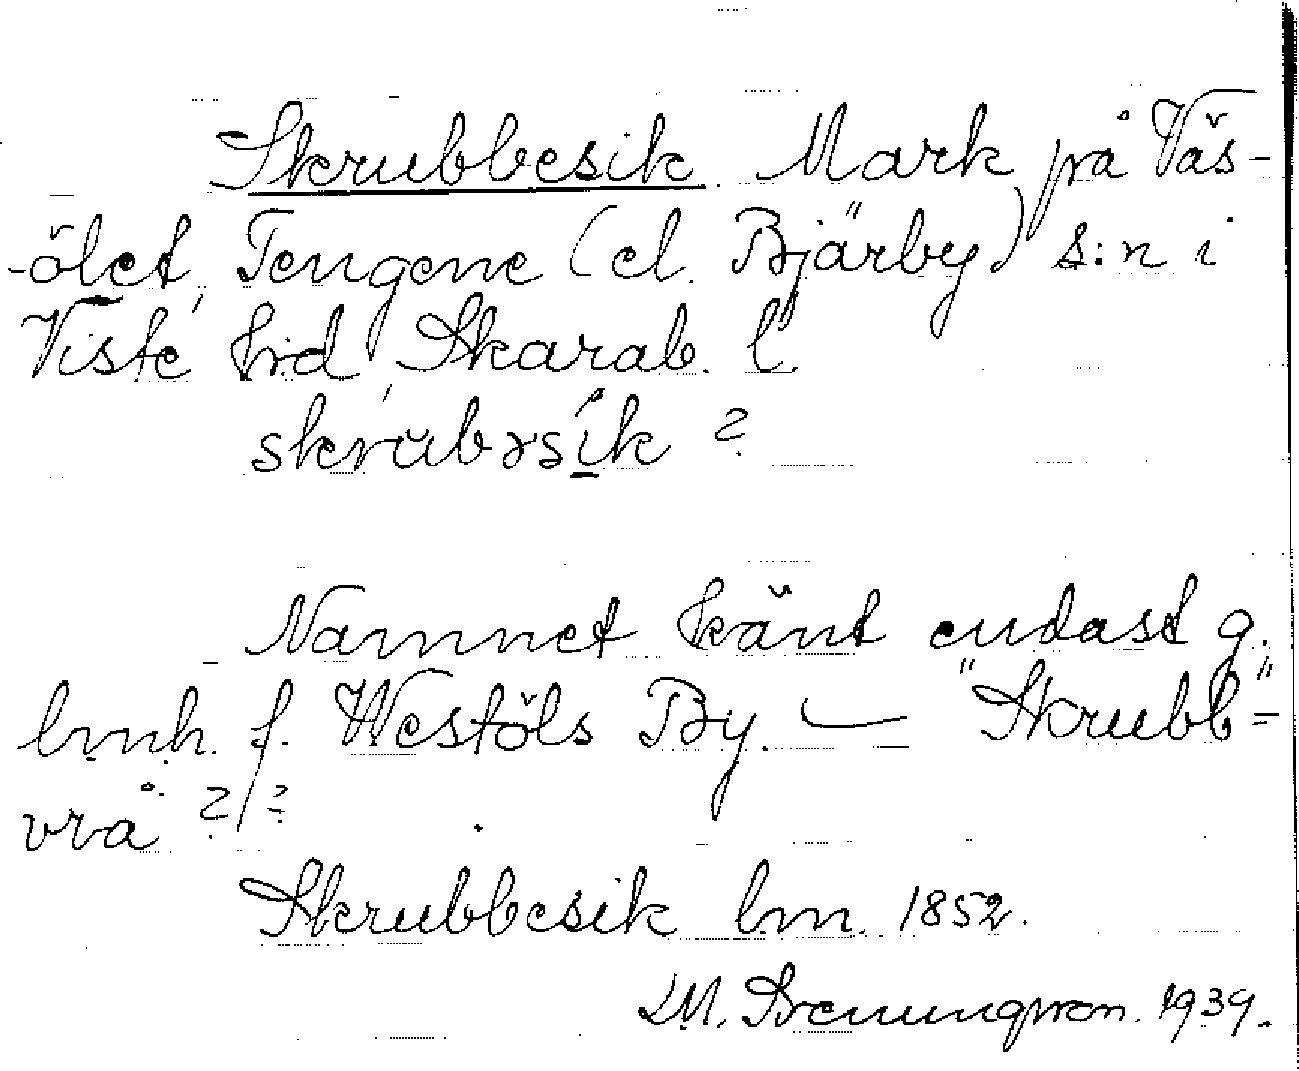 Skrubbesik. Mark på Väs-
-ölet, Tengene (el. Bjärby) s:n i
Viste hrd, Skarab. l.
skrubəsík ?
Namnet känt endast g.
lmh. f. Westöls By. — "Skrubb"=
vrå ?/?
Skrubbesik lm. 1852.
1939.